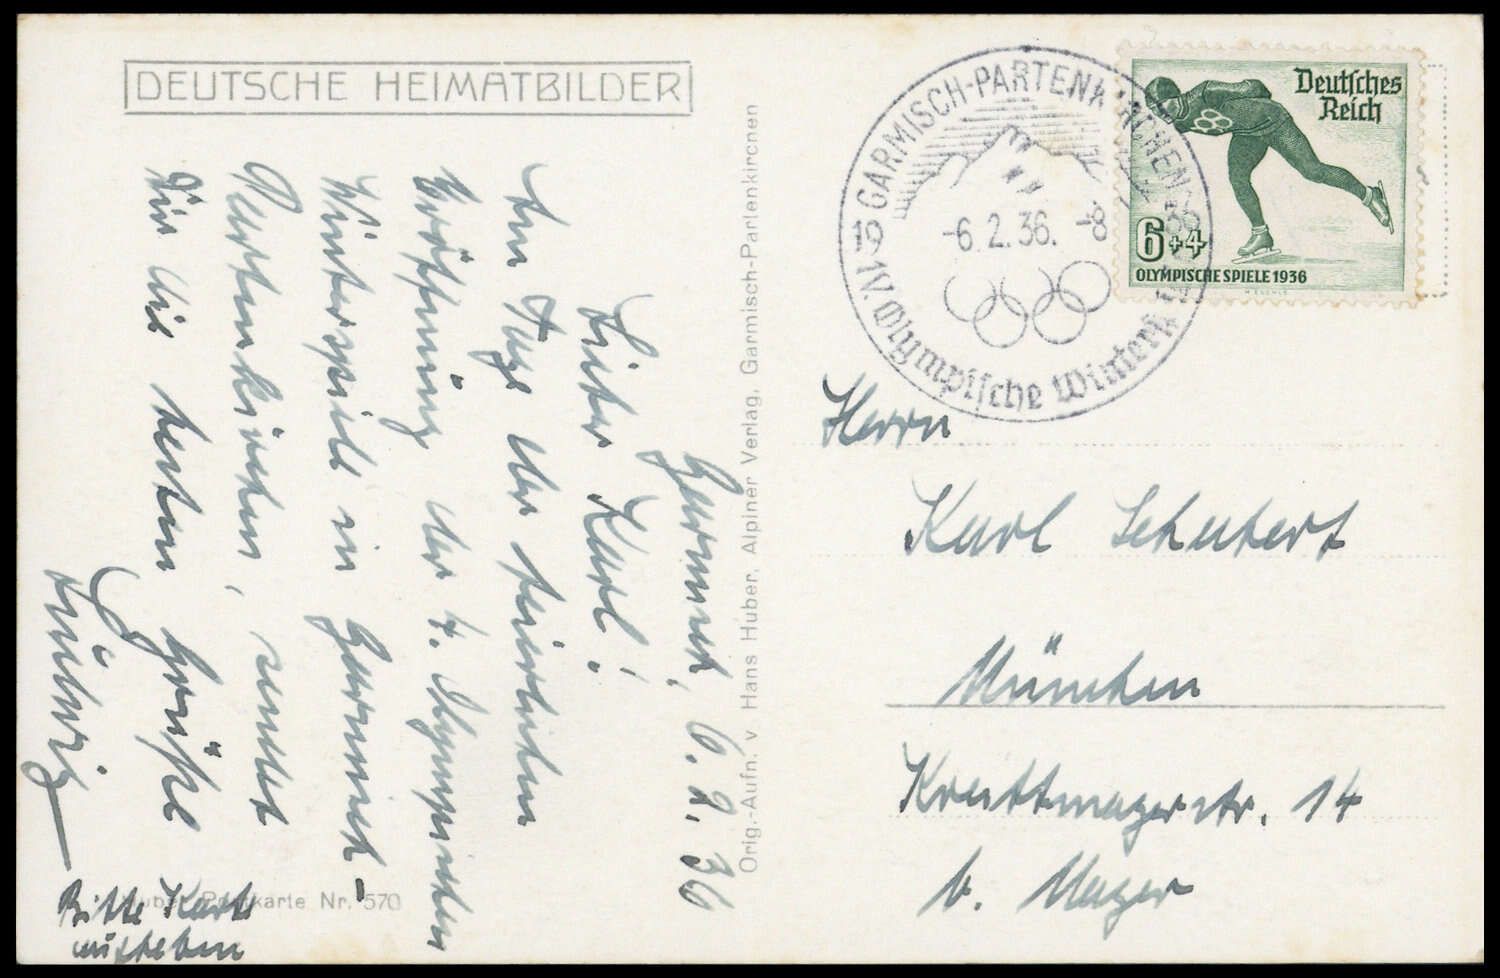 DEUTSCHE HEIMATBILDER
Garmisch, 6. 2. 36
Lieber Karl!
Am Tage der feierlichen
Eröffnung der 4. Olympischen
Winterspiele in Garmisch-
Partenkirchen, sendet
Dir die besten Grüße
Ludwig
Bitte Karte
aufheben
Huber Postkarte Nr. 570
Orig.-Aufn. v. Hans Huber, Alpiner Verlag, Garmisch-Partenkirchen
GARMISCH-PARTENKIRCHEN
1936
-6.2.36. -8
IV. Olympische Winterspiele
Deutsches
Reich
6+4
OLYMPISCHE SPIELE 1936
Herrn
Karl Schubert
München
str. 14
b. Mayer